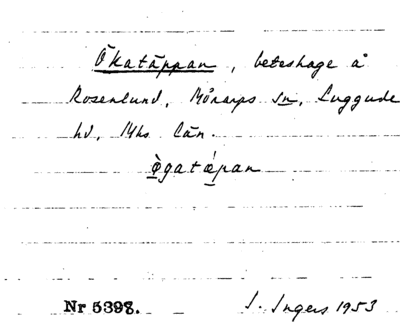 Ökatäppan, beteshage å
Rosenlund, Mörarps sn, Luggude
hd, Mhs län.
ø̀gatæ̀pan
Nr 5398. I. Ingers 1953